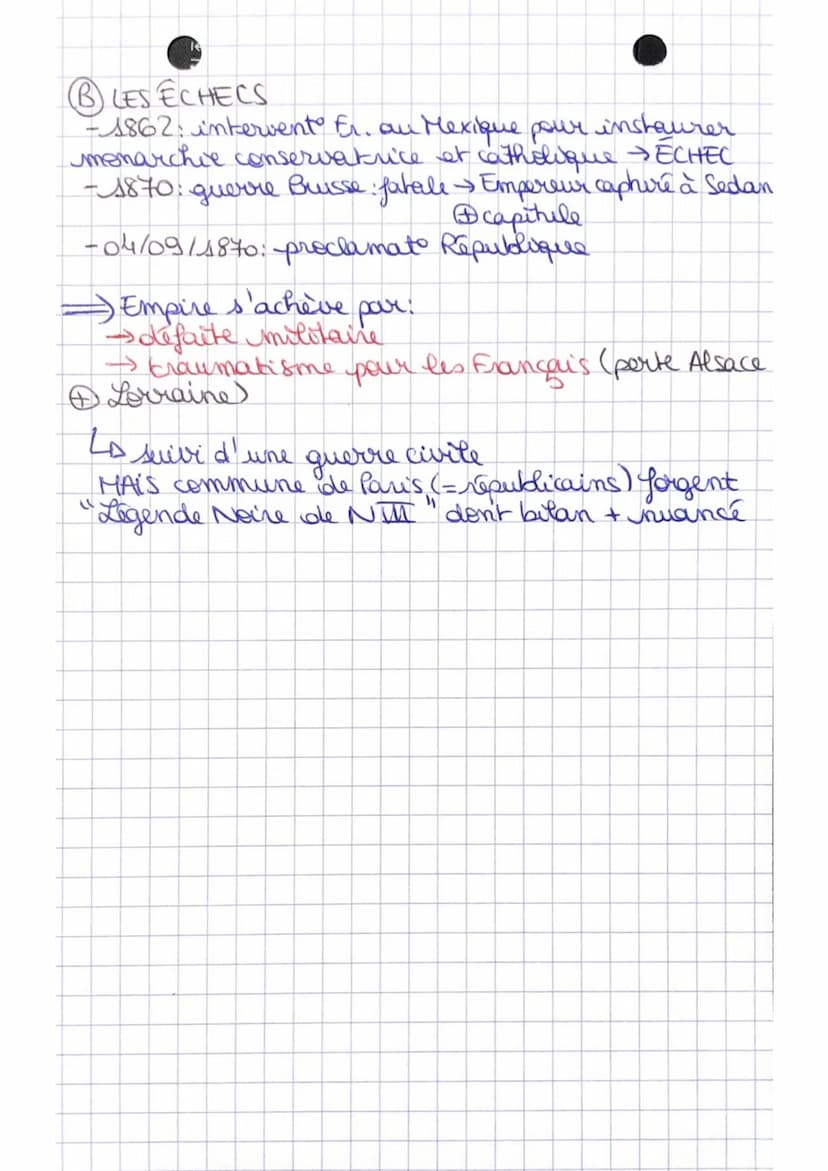 Ⓑ LES ÉCHECS
- 1862: intervent° Fr. au Mexique pour instaurer
monarchie conservatrice et catholique → ÉCHEC
- 1870: guerre Prusse: fatale → Empereur capturé à Sedan
⊕ capitule
- 04/09/1870: proclamat° République
⇒ Empire s'achève par:
→ défaite militaire
→ traumatisme pour les Français (perte Alsace
⊕ Lorraine)
↳ suivi d'une guerre civile
MAIS commune de Paris (= républicains) forgent
"Légende Noire de NIII" dont bilan + nuancé